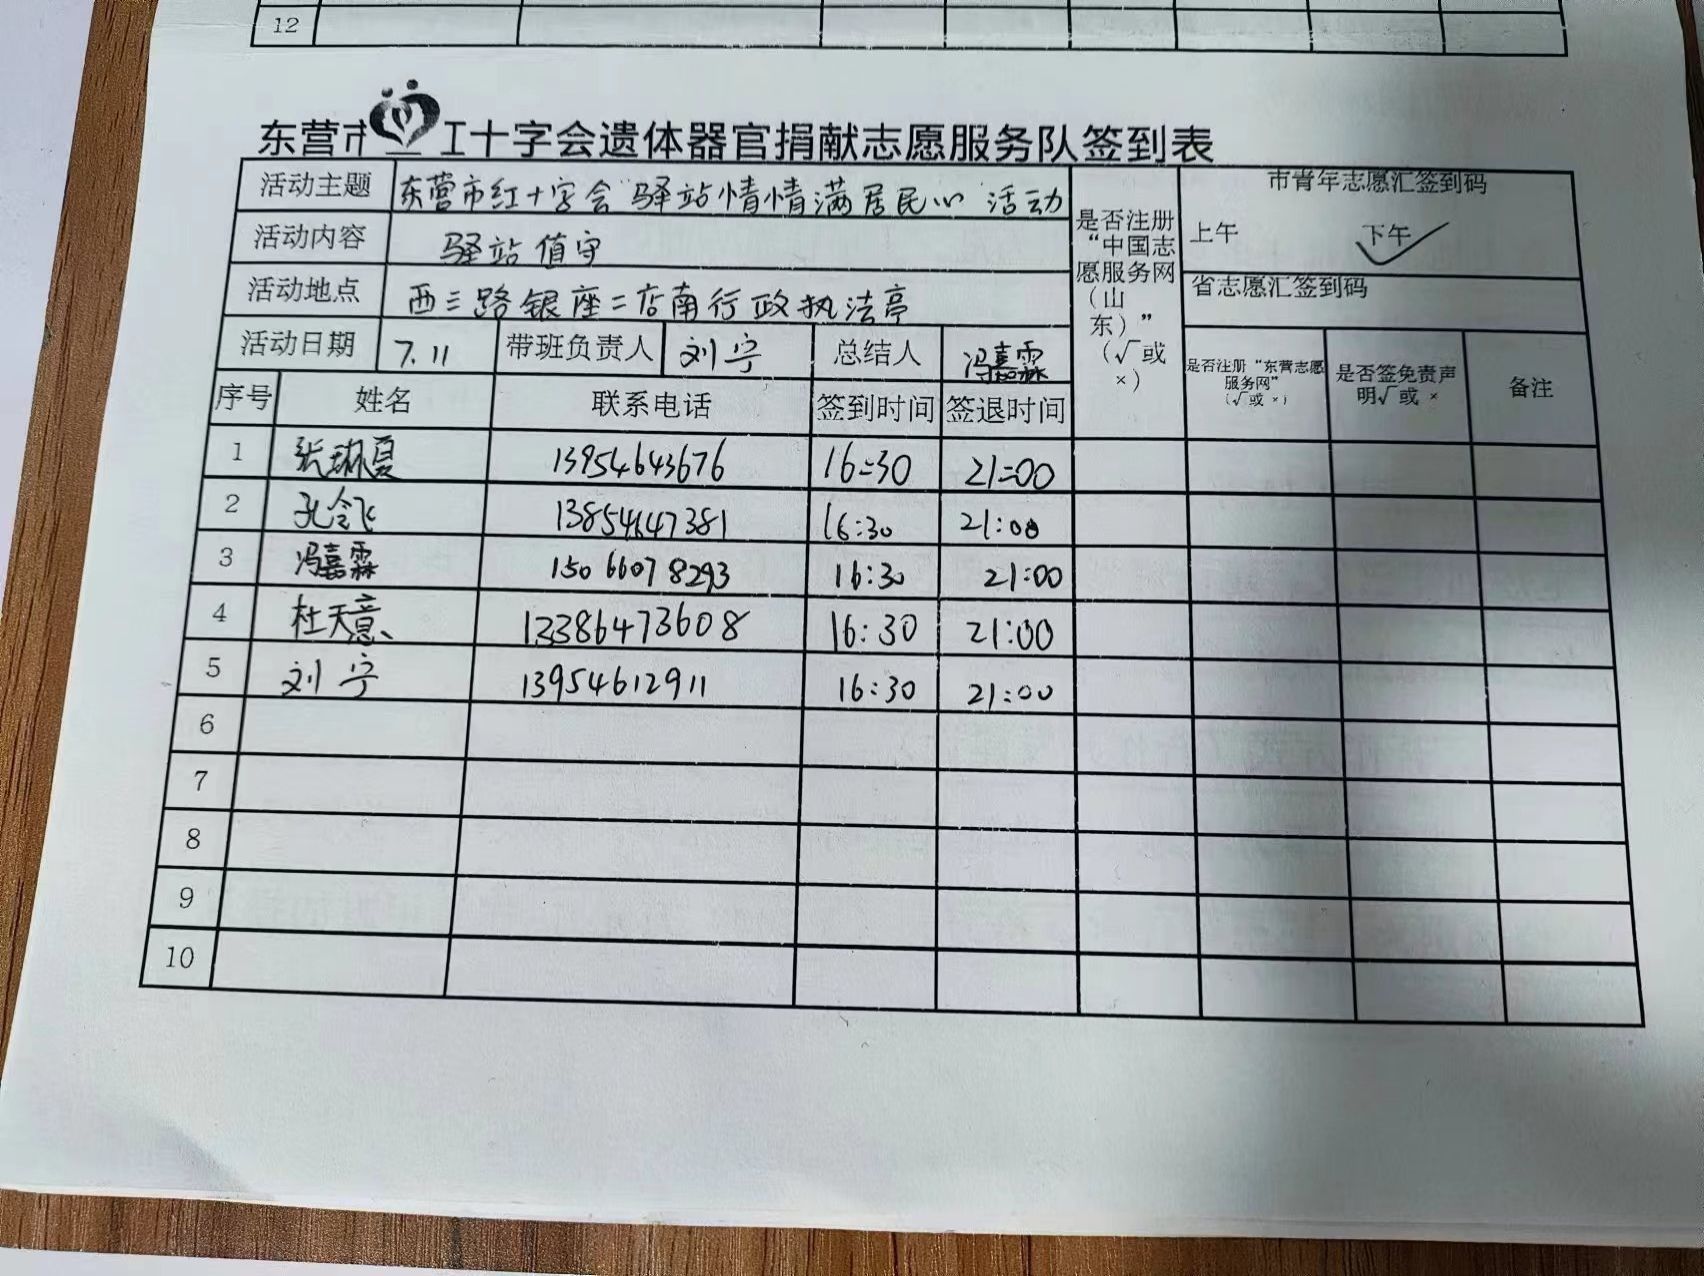 12
东营市红十字会遗体器官捐献志愿服务队签到表
活动主题 东营市红十字会"驿站情情满居民心"活动
是否注册“中国志愿服务网（山东）”（√或×）
市青年志愿汇签到码
上午 下午 ✓
活动内容 驿站值守
活动地点 西三路银座二店南行政执法亭
省志愿汇签到码
活动日期 7.11 带班负责人 刘宁 总结人 冯嘉霖
是否注册“东营志愿服务网”（√或×） 是否签免责声明√或× 备注
序号 姓名 联系电话 签到时间 签退时间
1 张琳夏 13954643676 16:30 21:00
2 孔令飞 13854647381 16:30 21:00
3 冯嘉霖 15066078293 16:30 21:00
4 杜天意 13386473608 16:30 21:00
5 刘宁 13954612911 16:30 21:00
6
7
8
9
10